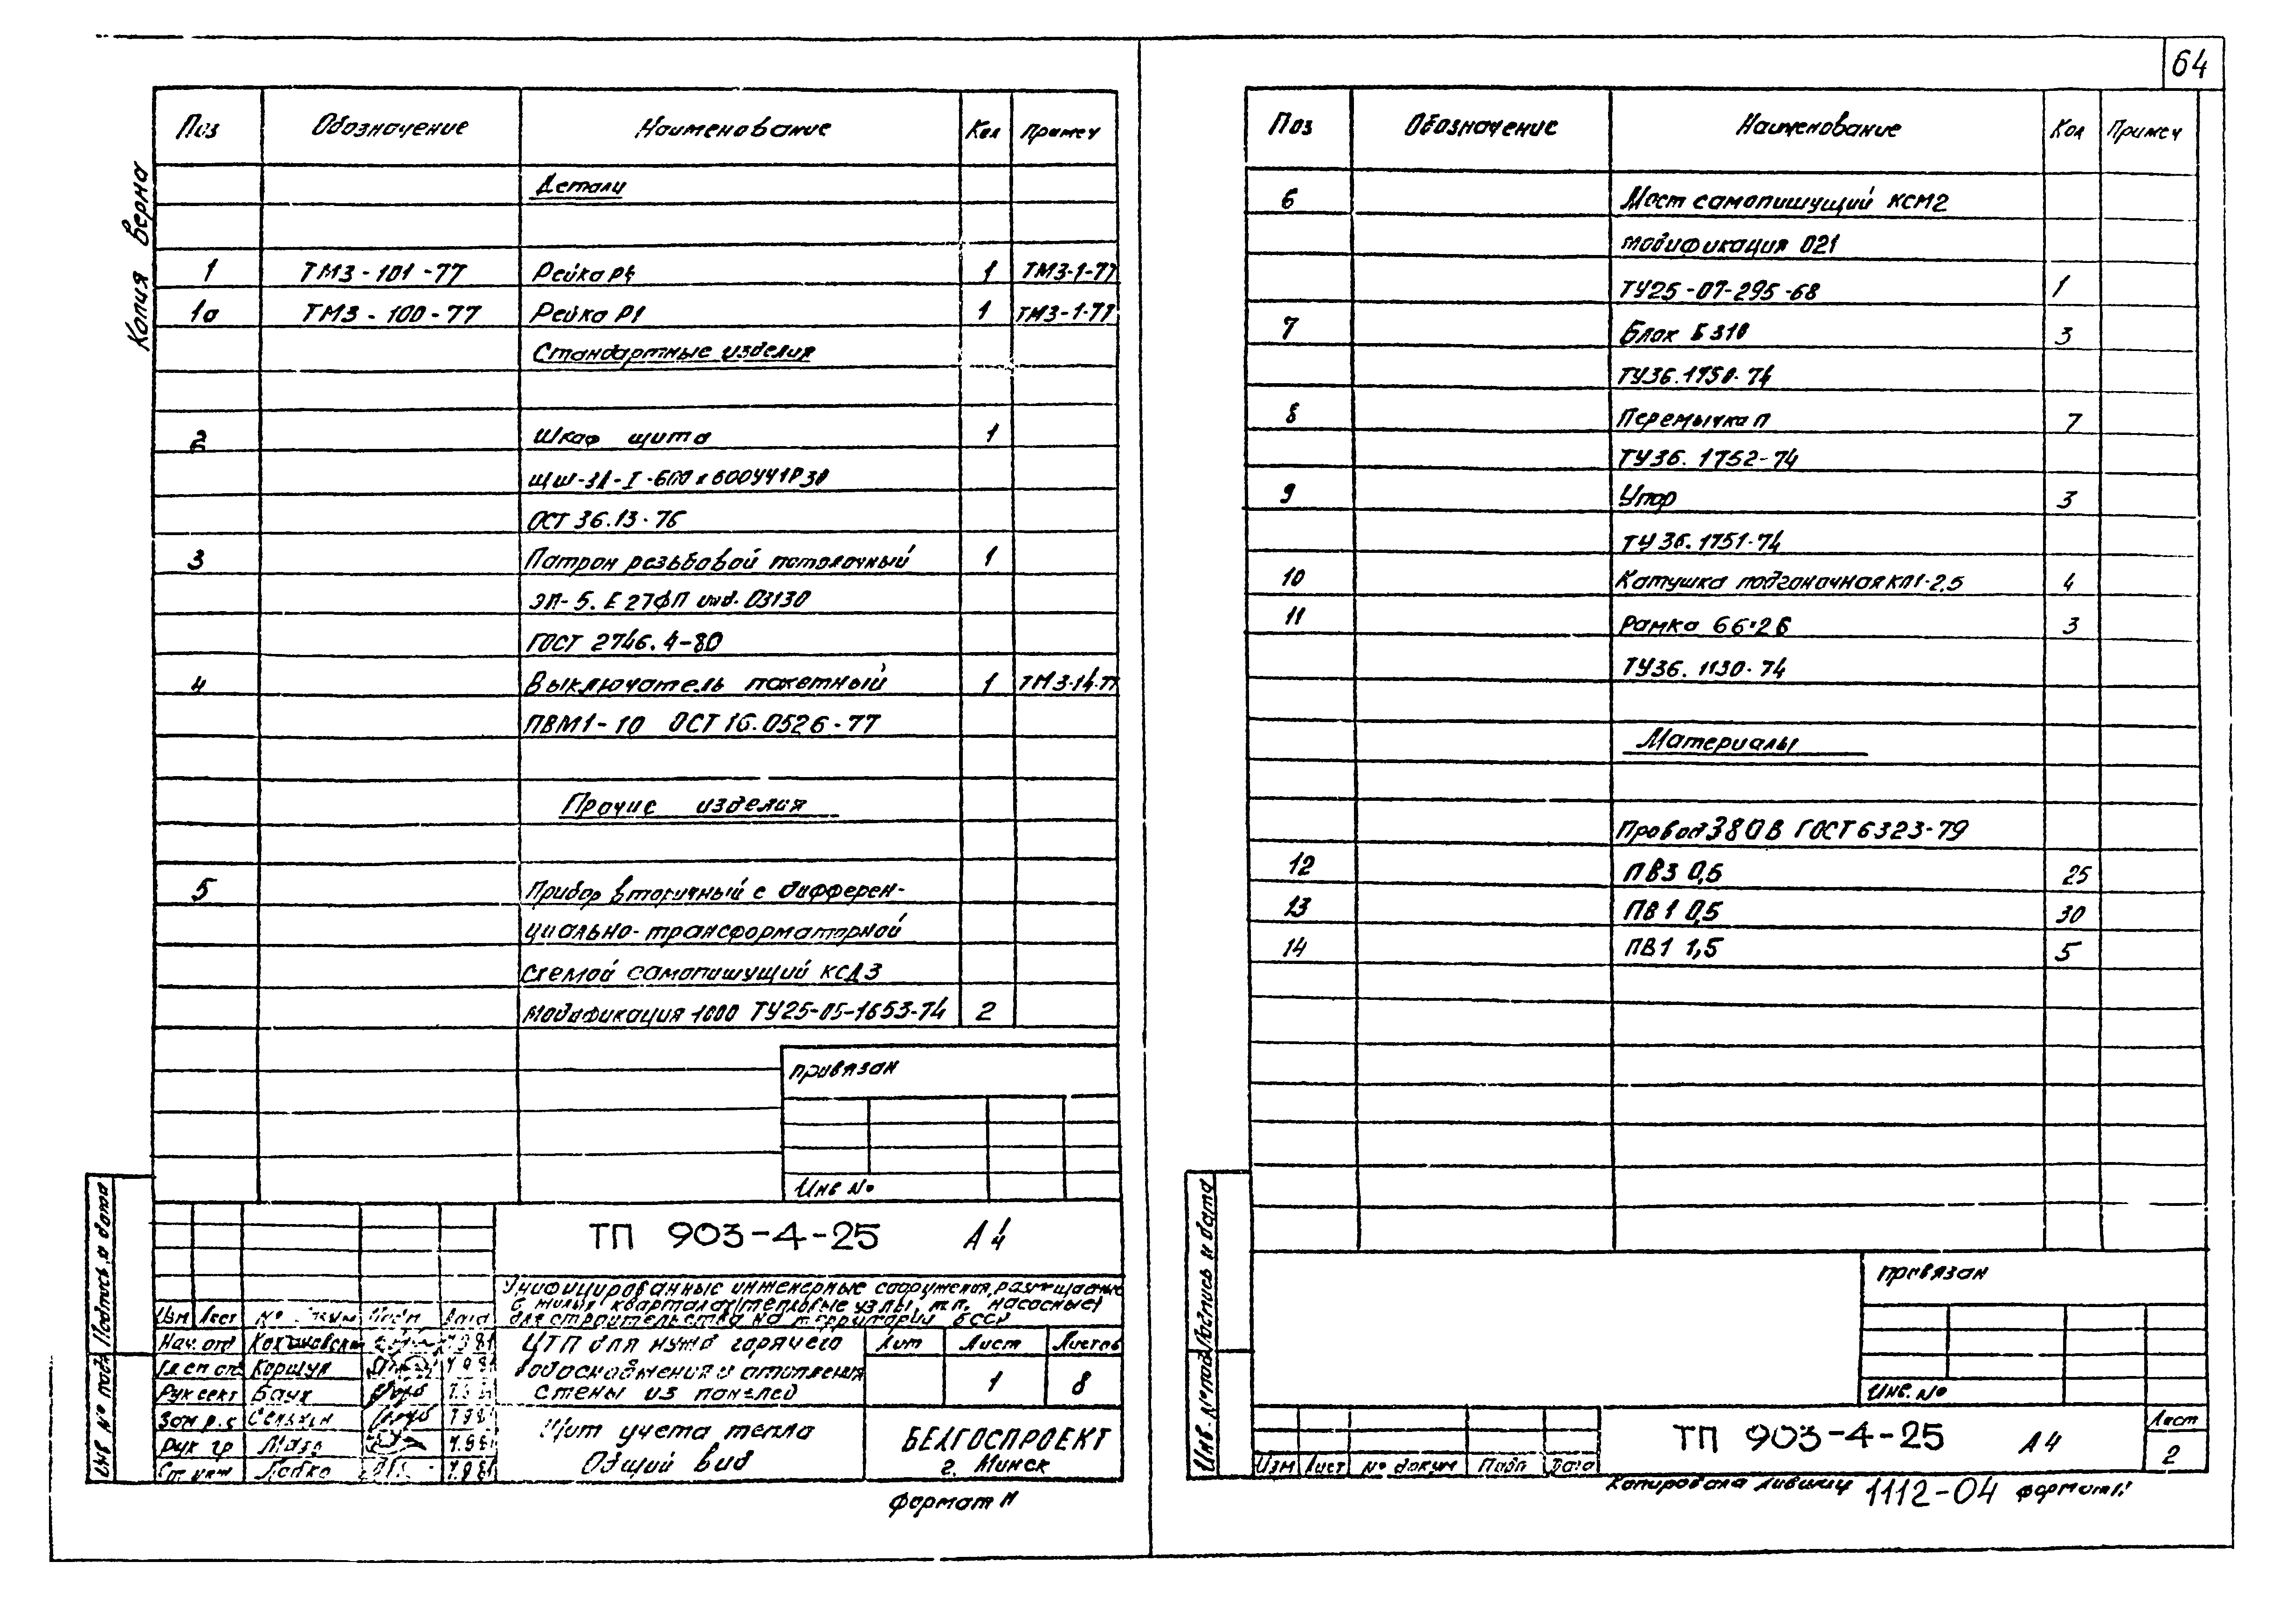 64
Копия верна
Поз Обозначение Наименование Кол Примеч
Детали
1 ТМ3-101-77 Рейка Р4 1 ТМ3-1-77
1а ТМ3-100-77 Рейка Р1 1 ТМ3-1-77
Стандартные изделия
2 Шкаф щита 1
ОСТ 36.13-76
3 Патрон резьбовой потолочный 1
ЭП-5. Е27ФП инд. 03130
ГОСТ 2746.4-80
4 Выключатель пакетный 1 ТМ3-14-77
ПВМ1-10 ОСТ 16.0526-77
Прочие изделия
5 Прибор вторичный с дифферен-
циально-трансформаторной
схемой самопишущий КСД3
модификация 1000 ТУ25-05-1653-74 2
привязан
Инв №
ТП 903-4-25 А4
Унифицированные инженерные сооружения, размещаемые
в жилых кварталах (тепловые узлы, т.п. насосные)
для строительства на территории БССР
Изм Лист Дата
Нач. отд
Гл. сп. отд Коршук
Рук сект Баух
Зам. р. с
Рук гр
ЦТП для нужд горячего
водоснабжения и отопления
стены из панелей
Лит Лист Листов
1 8
Щит учета тепла
Общий вид
БЕЛГОСПРОЕКТ
г. Минск
Инв № подл Подпись и дата
формат
Поз Обозначение Наименование Кол Примеч
6 Мост самопишущий КСМ2
модификация 021
ТУ25-07-295-68 1
7 Блок Б310 3
ТУ36.1750-74
8 Перемычка П 7
ТУ36.1752-74
9 Упор 3
ТУ36.1751-74
10 Катушка подгоночная КП1-2,5 4
11 Рамка 66×26 3
ТУ36.1130-74
Материалы
Провод 380В ГОСТ 6323-79
12 ПВ3 0,5 25
13 ПВ1 0,5 30
14 ПВ1 1,5 5
привязан
Инв. №
Инв. № подл Подпись и дата
Изм Лист № докум Подп Дата
ТП 903-4-25 А4
Лист
2
Копировала 1112-04 формат